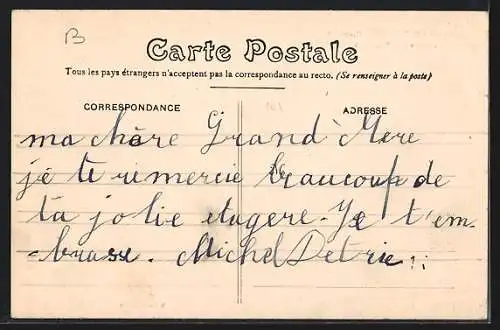 B
Carte Postale
Tous les pays étrangers n'acceptent pas la correspondance au recto. (Se renseigner à la poste)
CORRESPONDANCE
ADRESSE
ma chère Grand Mère
je te remercie beaucoup de
ta jolie etagere. Je t'em-
-brasse. Michel Detrie